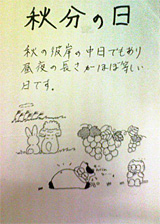 秋分の日
秋の彼岸の中日でもあり
昼夜の長さがほぼ等しい
日です。